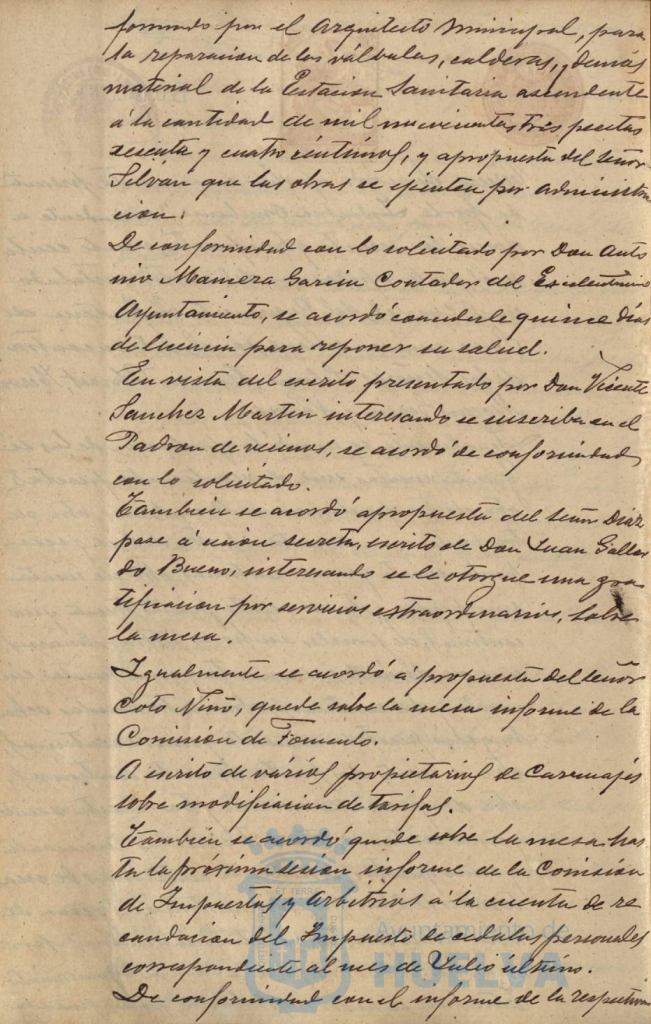 formado por el Arquitecto Municipal, para
la reparacion de las válbulas, calderas, y demás
material de la Estacion Sanitaria ascendente
á la cantidad de mil nuevecientas tres pesetas
sesenta y cuatro céntimos, y apropuesta del señor
Silván que las obras se ejecuten por administra
cion.
De conformidad con lo solicitado por Don Anto
nio Garcia Contador del Excelentisimo
Ayuntamiento, se acordó concederle quince dias
de licencia para reponer su salud.
En vista del escrito presentado por Don Vicente
Sanchez Martin interesando se inscriba en el
Padron de vecinos, se acordó de conformidad
con lo solicitado.
Tambien se acordó apropuesta del señor Diaz
pase á sesion secreta, escrito de Don Juan Gallar
do Bueno, interesando se le otorgue una gra
tificacion por servicios extraordinarios, sobre
la mesa.
Igualmente se acordó á propuesta del señor
Coto Niño, quede sobre la mesa informe de la
Comision de Fomento.
A escrito de vários propietarios de Carruajes
sobre modificacion de tarifas.
Tambien se acordó quede sobre la mesa has
ta la próxima sesion informe de la Comision
de Impuestos y Arbitrios á la cuenta de re
caudacion del Impuesto de cédulas personales
correspondiente al mes de Julio ultimo.
De conformidad con el informe de la respectiva
Ayuntamiento de
HUELVA